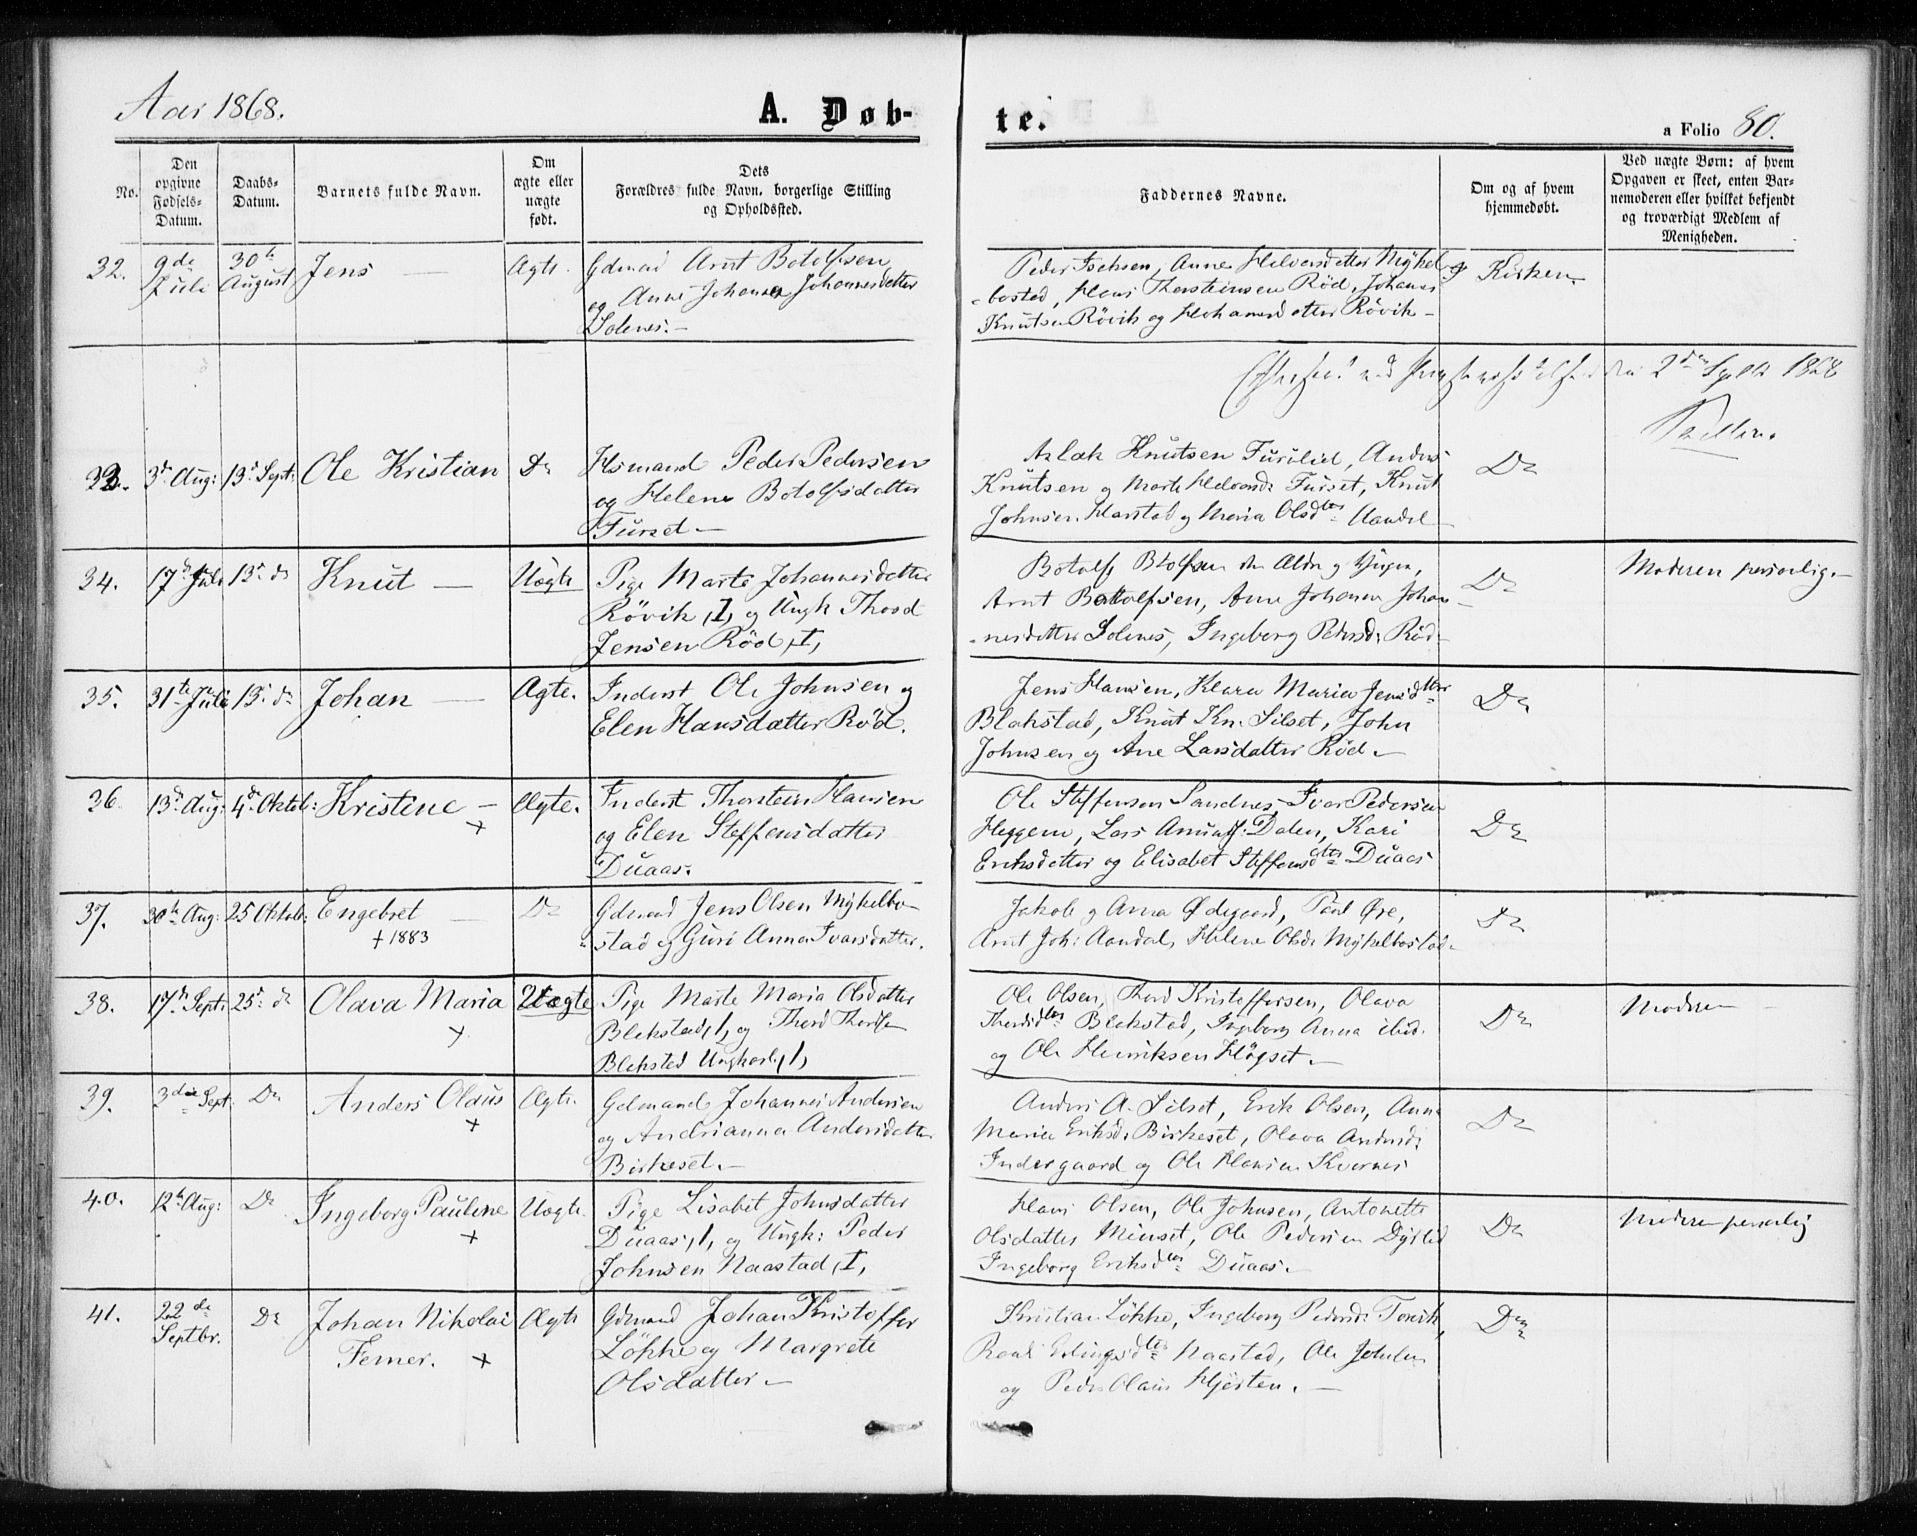 Aar 1868.
A. Døb-
te.
a Folio 80.
No.
Den opgivne Fødsels-Datum.
Daabs-Datum.
Barnets fulde Navn.
Om ægte eller uægte født.
Dets Forældres fulde Navn, borgerlige Stilling og Opholdssted.
Faddernes Navne.
Om og af hvem hjemmedøbt.
Ved uægte Børn: af hvem Opgaven er skeet, enten Barnemoderen eller hvilket bekjendt og troværdigt Medlem af Menigheden.
32. 9de Juli 30te August Jens — Ægte. Gdmand Arnt Botolfsen
og Anne Johanna Johannesdatter
Solenes. —
Peder Anne Halvorsdatter Mykel
-bostad, Hans Thorsteinsen Röd, Johannes
Knutsen Rövik og Johannesdatter Rövik —
Kirken.
den 2den Septbr 1868
33. 3de Aug: 13de Sept: Ole Kristian Do Hsmand Peder Pedersen
og Helene Botolfsdatter
Furset —
Aslak Knutsen Furulid, Anders
Knutsen og Marte Halvorsd: Furset, Knut
Johnsen Harstad og Maria Olsdtr Aandal
Do
34. 17de Juli 13de do Knut — Uægte Pige Marte Johannesdatter
Rövik ,1, og Ungk Thord
Jensen Röd ,1,
Botolf Btolfsen den Ældre og Yngre,
Arnt Botolfsen, Anne Johanna Johan
-nesdatter Solenes, Ingeborg Pedersd: Röd —
Do
Moderen personlig. —
35. 31te Juli 13de do Johan — Ægte. Inderst Ole Johnsen og
Elen Hansdatter Röd.
Jens Hansen, Klara Maria Jensdtter
Blakstad, Knut Kn. Silset, John
Johnsen og Ane Larsdatter Röd —
Do
36. 13de Aug: 4de Oktob: Kristine — + Ægte. Inderst Thorstein Hansen
og Elen Steffensdatter
Duaas.
Ole Steffensen Sandnes, Ivar Pedersen
Heggem, Lars Amunds: Dalen, Kari
Eriksdatter og Elisabet Steffensdtter Duaas
Do
37. 30te Aug: 25 Oktob: Engebret — + 1883 Do Gdmand Jens Olsen Mykelbo
-stad og Guri Anna Ivarsdatter.
Jakob og Anna Ødegaard, Paul Øre,
Arnt Joh: Aandal, Helene Olsd: Mykelbostad —
Do
38. 17de Sept: 25de do Olava Maria + Uægte Pige Marte Maria Olsdatter
Blekstad ,1, og Thord Thordsen
Blekstad Ungkarl ,1,
Ole Olsen, Thord Kristoffersen, Olava
Thordsdtr Blekstad, Ingeborg Anna ibid.
og Ole Henriksen Högset. —
Do
Moderen —
39. 3die Sept: Do Anders Olaus + Ægte. Gdmand Johannes Andersen
og Andrianna Andersdatter
Birkeset. —
Anders A. Silset, Erik Olsen, Anna
Maria Eriksd: Birkeset, Olava Andersd:
Indergaard og Ole Hansen Kvernes
Do
40. 12te Aug: Do Ingeborg Pauline + Uægte. Pige Lisabet Johnsdatter
Duaas ,1, og Ungk: Peder
Johnsen Naastad ,1,
Hans Olsen, Ole Johnsen, Antonette
Olsdatter Meisset, Ole Pedersen Dyrlid
Ingeborg Eriksdtr Duaas —
Do
Moderen personlig
41. 22de Septbr. Do Johan Nikolai
Femer. + Ægte Gdmand Johan Kristoffer
Lökke og Margrete
Olsdatter —
Kristian Lökke, Ingeborg Pedersd: Torvik,
Erlingsdtr Naastad, Ole Johnsen
og Peder Olaus Hjorten. —
Do